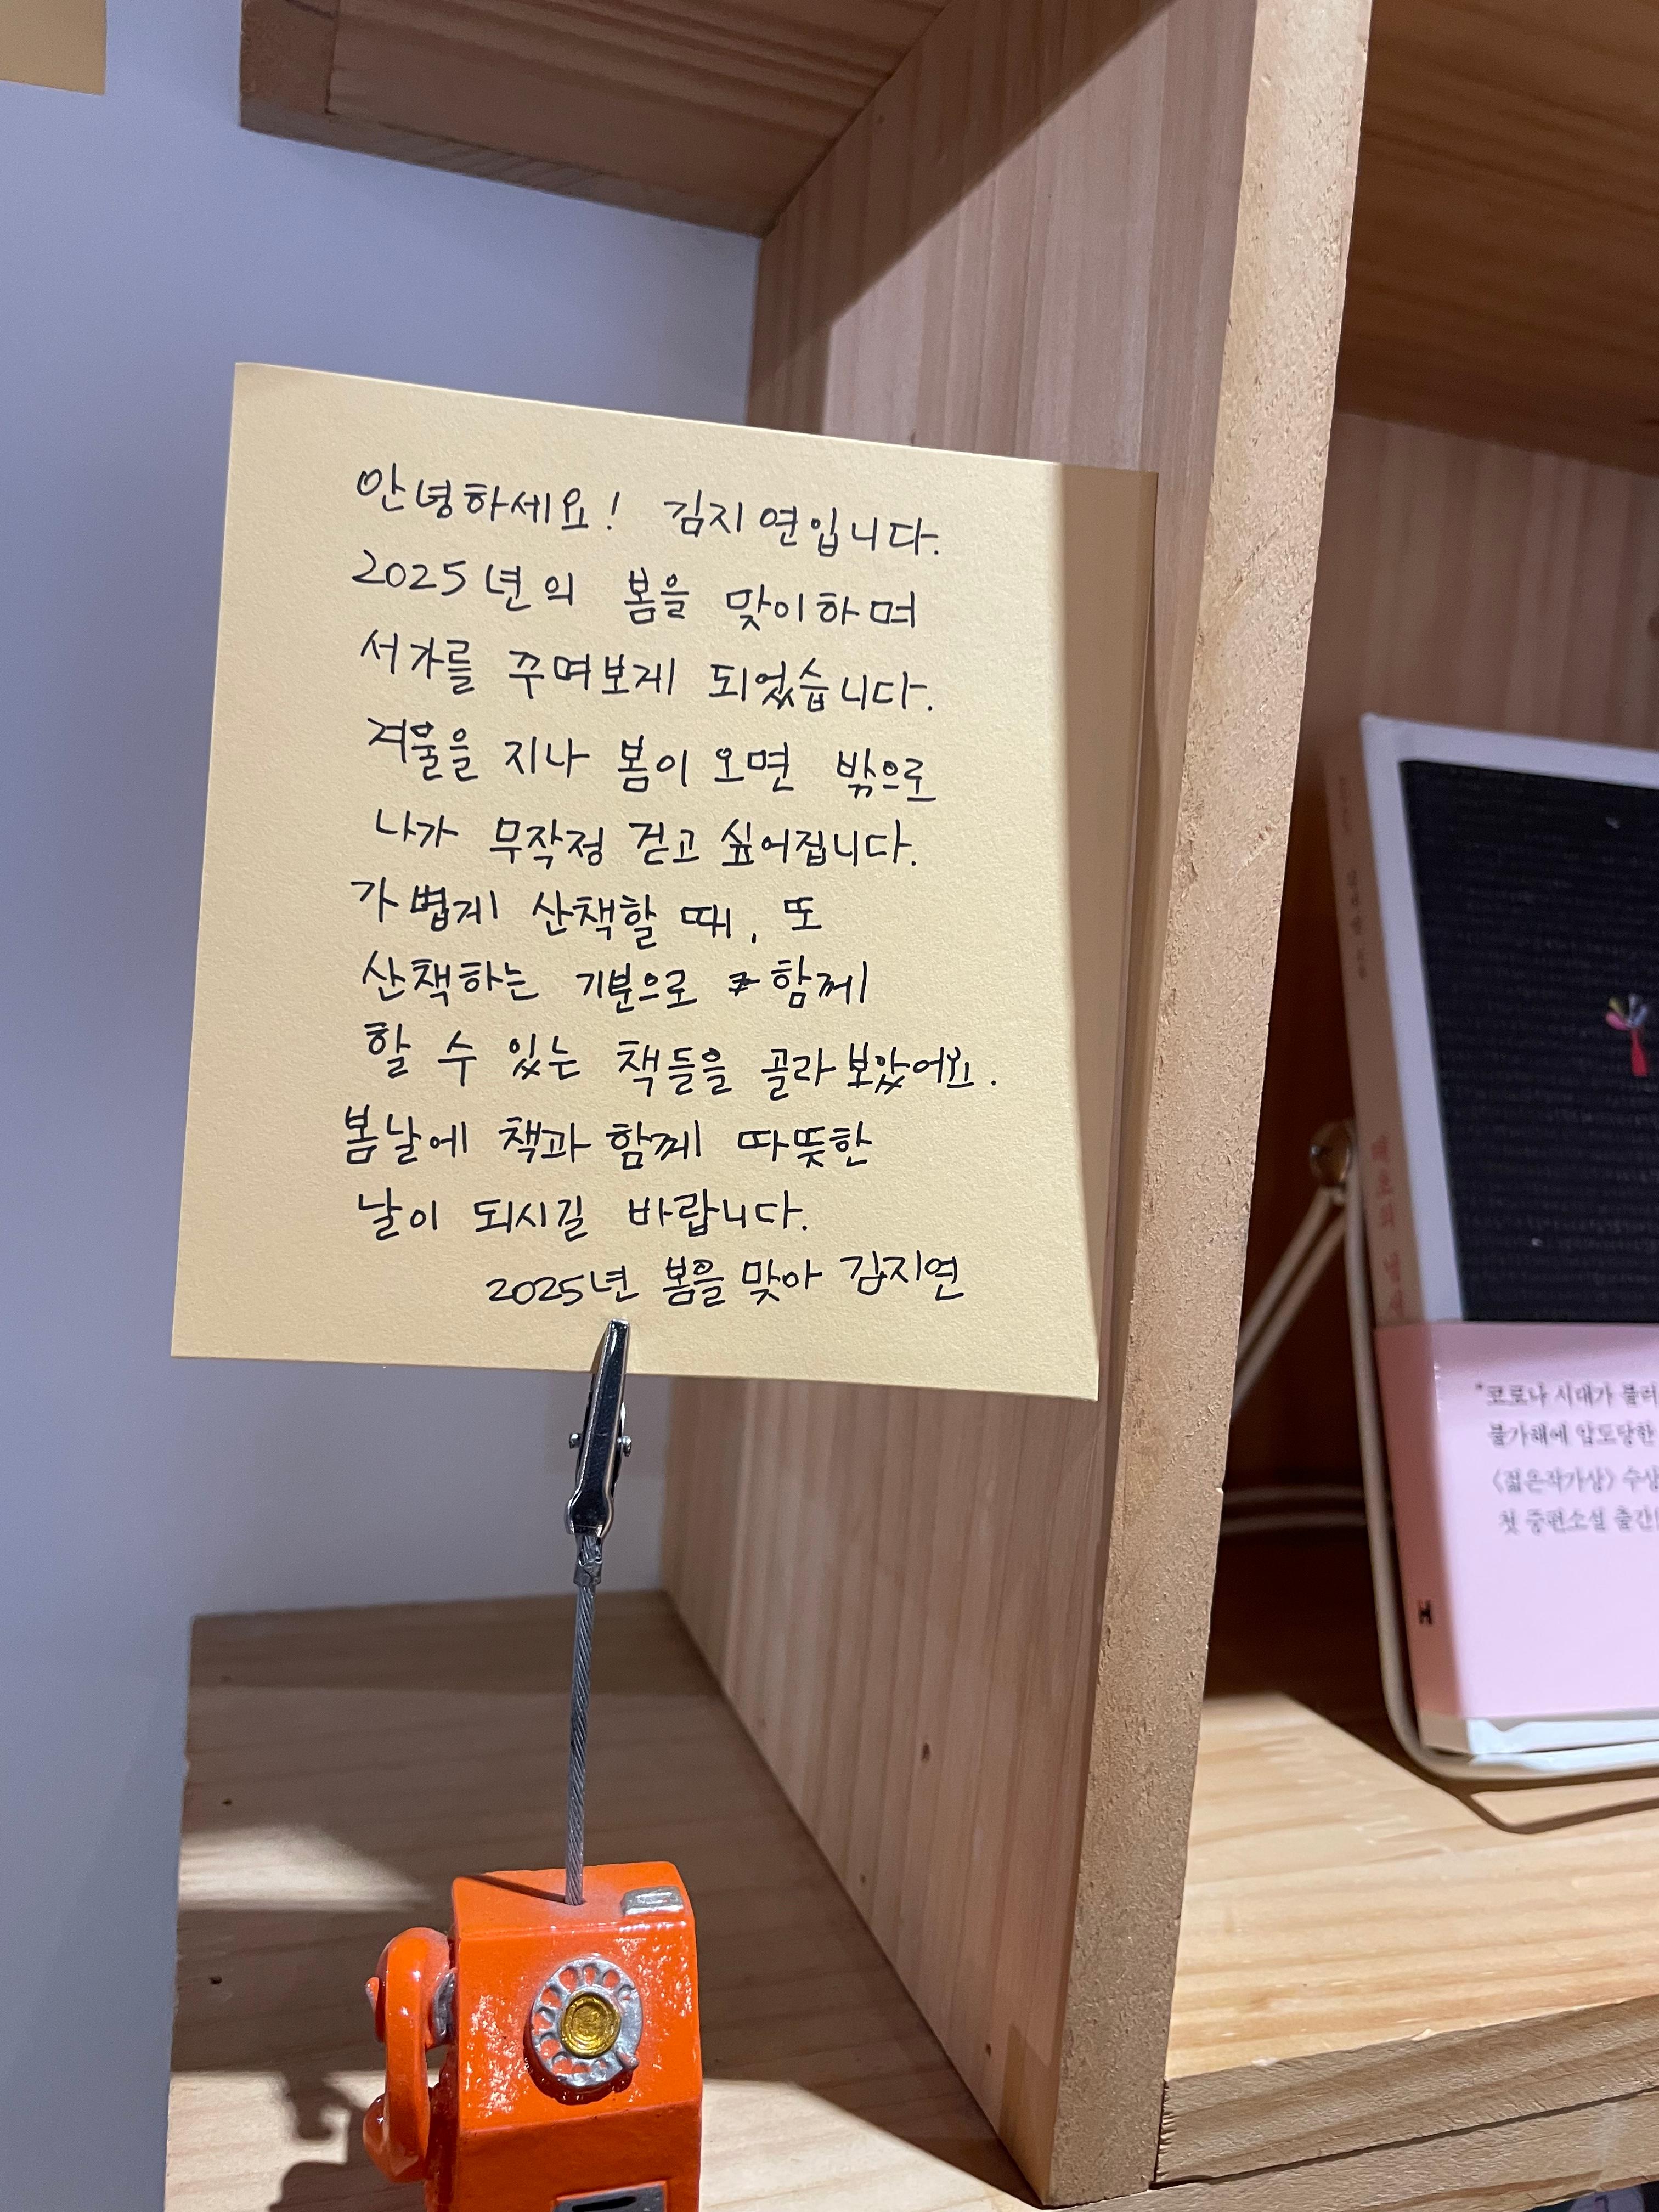 안녕하세요! 김지연입니다.
2025년의 봄을 맞이하며
서가를 꾸며보게 되었습니다.
겨울을 지나 봄이 오면 밖으로
나가 무작정 걷고 싶어집니다.
가볍게 산책할 때, 또
산책하는 기분으로 함께
할 수 있는 책들을 골라보았어요.
봄날에 책과 함께 따뜻한
날이 되시길 바랍니다.
2025년 봄을 맞아 김지연
태초의 냄새
"코로나 시대가 불러
불가해에 압도당한
〈젊은작가상〉 수상
첫 중편소설 출간!
H